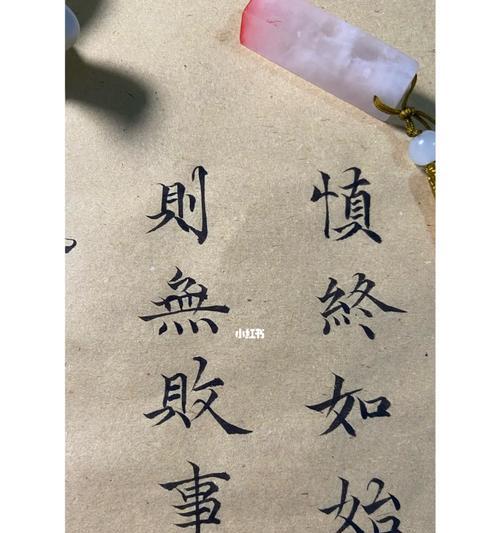 慎終如始
則無敗事
小红书